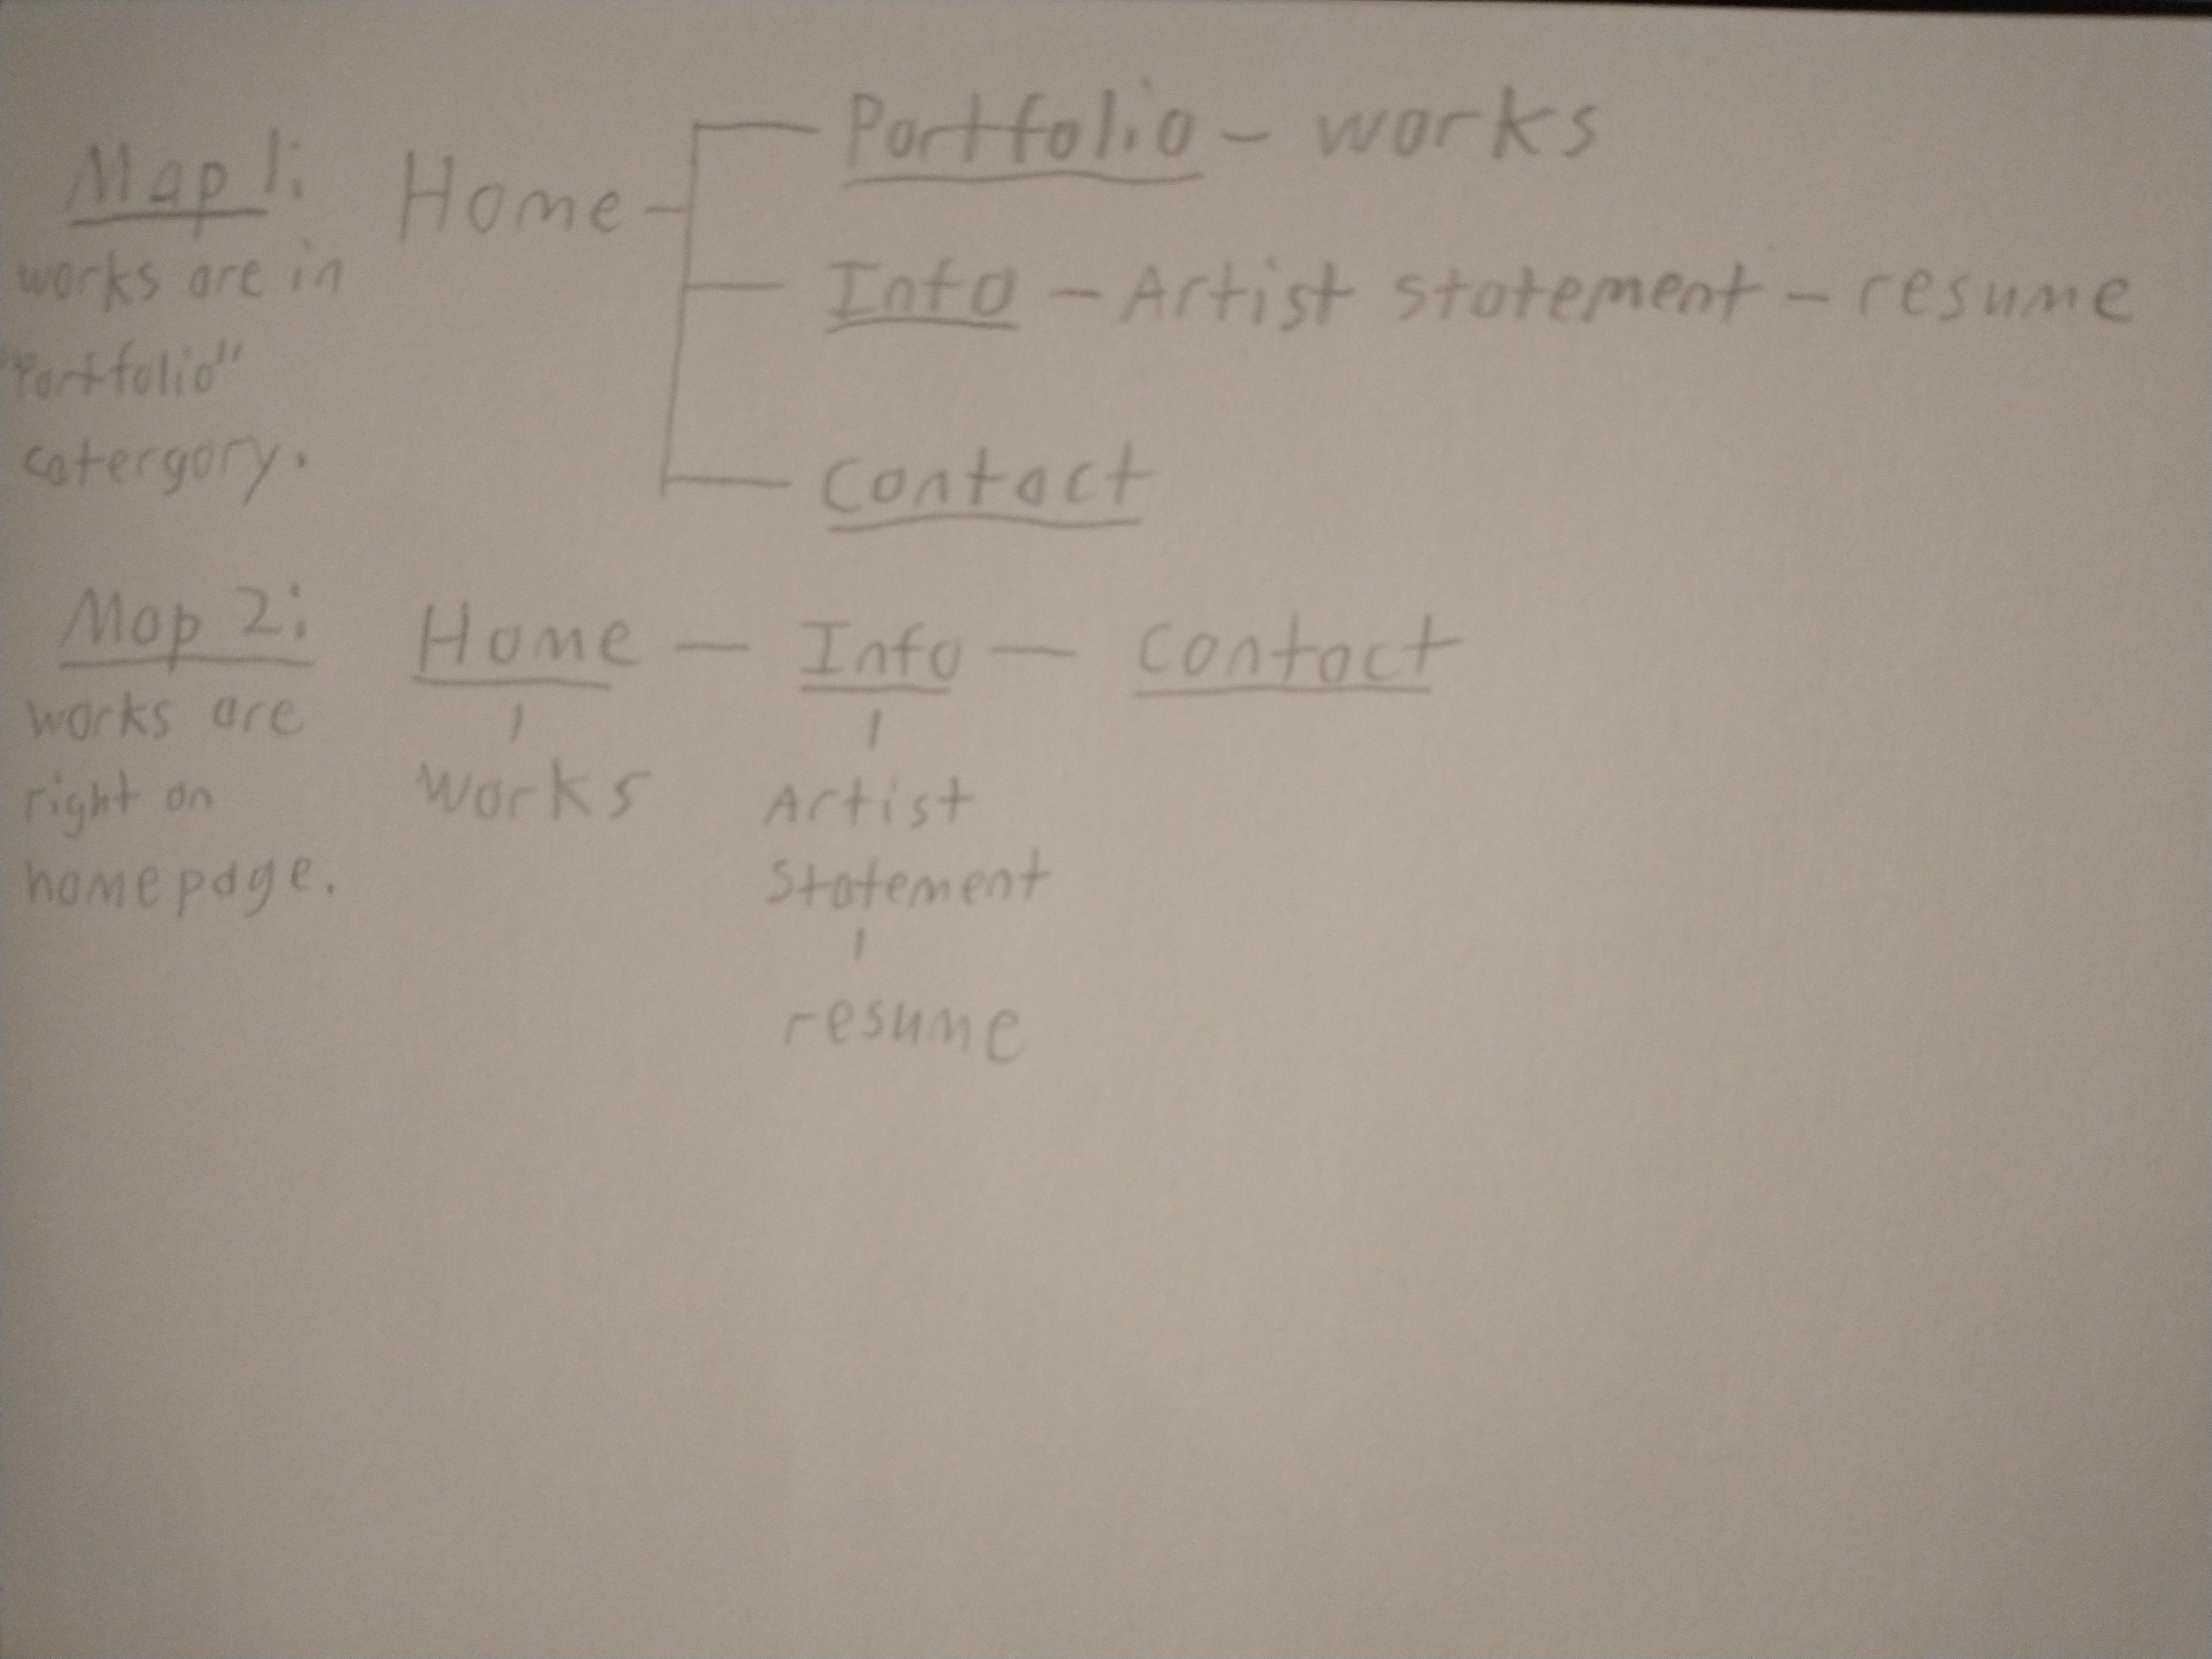 Map 1:
works are in
"Portfolio"
catergory.
Home
Portfolio - works
Info - Artist statement - resume
Contact
Map 2:
works are
right on
homepage.
Home - Info - Contact
works
Artist
Statement
resume